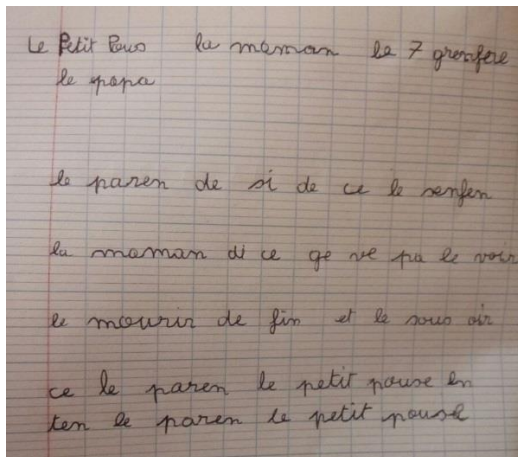 Le Petit Pous la maman le 7 gronfere
le papa
le paren de si de ce le senfen
la maman di ce ge ve pa le voir
le mourir de fin et le sous oir
ce le paren le petit pouse en
ten le paren le petit pouse